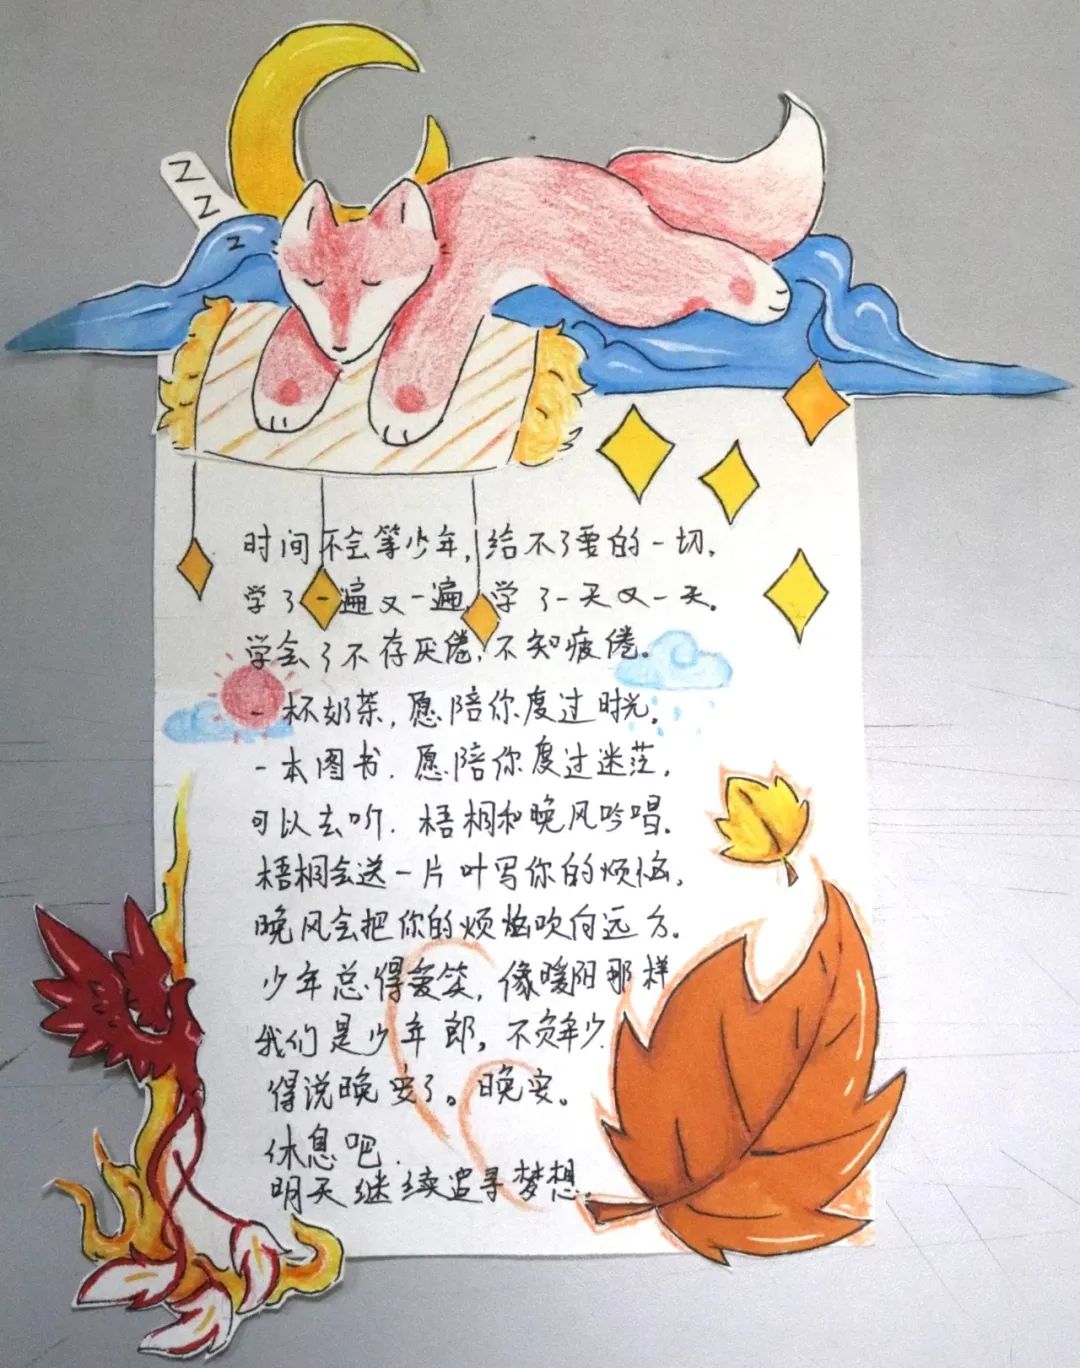 Z
Z
Z
时间不会等少年，给不了要的一切，
学了一遍又一遍，学了一天又一天。
学会了不存厌倦，不知疲倦。
一杯奶茶，愿陪你度过时光，
一本图书，愿陪你度过迷茫，
可以去听，梧桐和晚风吟唱，
梧桐会送一片叶写你的烦恼，
晚风会把你的烦恼吹向远方。
少年总得爱笑，像暖阳那样
我们是少年郎，不负年少.
得说晚安了。晚安。
休息吧.
明天继续追寻梦想。